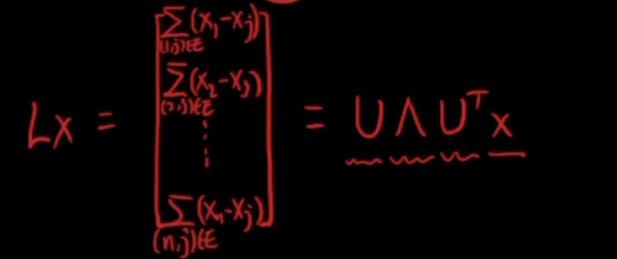 Lx = [ ∑_{(1,j)∈E} (x₁-xⱼ)
∑_{(2,j)∈E} (x₂-xⱼ)
⋮
∑_{(n,j)∈E} (xₙ-xⱼ) ] = U Λ Uᵀ x